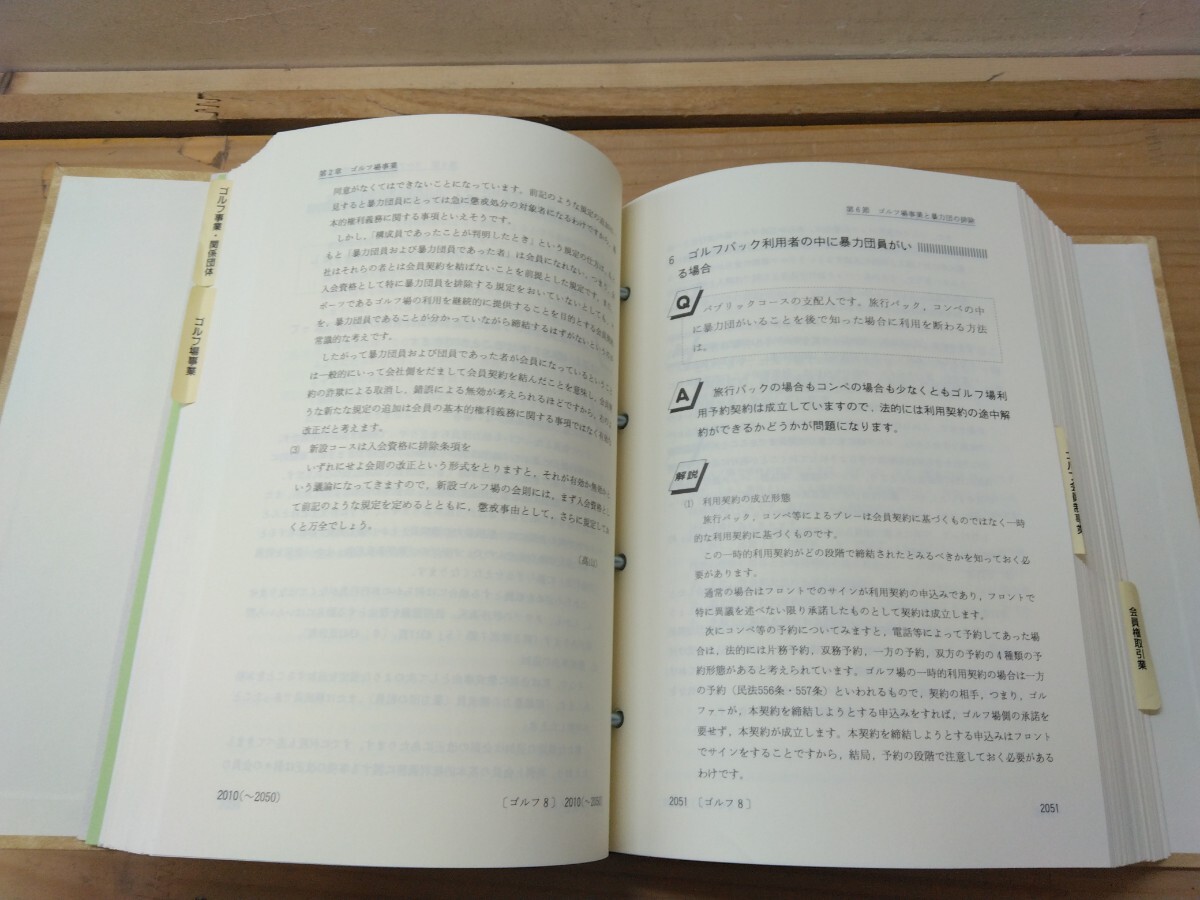 ゴルフ事業・関係団体
ゴルフ場事業
第2章 ゴルフ場事業
同意がなくてはできないことになっています。前記のような規定の
見すると暴力団員にとっては急に懲戒処分の対象者になるわけですから、
本的権利義務に関する事項といえそうです。
しかし、「構成員であったことが判明したとき」という規定の
もと「暴力団員および暴力団員であった者」は会員になれない、つまり、
社はそれらの者とは会員契約を結ばないことを前提とした規定です。また、
入会資格として特に暴力団員を排除する規定をおいていないとしても、
ポーツであるゴルフ場の利用を継続的に提供することを目的とする
を、暴力団員であることが分かっていながら締結するはずがないという
常識的な考えです。
したがって暴力団員および団員であった者が会員になっているということ
は一般的にいって会社側をだまして会員契約を結んだことを意味し、
約の詐欺による取消し、錯誤による無効が考えられるほどですから、
うな新たな規定の追加は会員の基本的権利義務に関する事項ではなく
改正だと考えます。
(3) 新設コースは入会資格に排除条項を
いずれにせよ会則の改正という形式をとりますと、それが有効か無効か
いう議論になってきますので、新設ゴルフ場の会則には、まず入会資格とし
て前記のような規定を定めるとともに、懲戒事由として、さらに規定してお
くと万全でしょう。
2010(〜2050)
〔ゴルフ8〕 2010(〜2050)
第6節 ゴルフ場事業と暴力団の排除
6 ゴルフパック利用者の中に暴力団員がい
る場合
Q
パブリックコースの支配人です。旅行パック、コンペの中
に暴力団がいることを後で知った場合に利用を断わる方法
は。
A
旅行パックの場合もコンペの場合も少なくともゴルフ場利
用予約契約は成立していますので、法的には利用契約の途中解
約ができるかどうかが問題になります。
解説
(1) 利用契約の成立形態
旅行パック、コンペ等によるプレーは会員契約に基づくものではなく一時
的な利用契約に基づくものです。
この一時的利用契約がどの段階で締結されたとみるべきかを知っておく必
要があります。
通常の場合はフロントでのサインが利用契約の申込みであり、フロントで
特に異議を述べない限り承諾したものとして契約は成立します。
次にコンペ等の予約についてみますと、電話等によって予約してあった場
合は、法的には片務予約、双務予約、一方の予約、双方の予約の4種類の予
約形態があると考えられています。ゴルフ場の一時的利用契約の場合は一方
の予約(民法556条・557条)といわれるもので、契約の相手、つまり、ゴル
ファーが、本契約を締結しようとする申込みをすれば、ゴルフ場側の承諾を
要せず、本契約が成立します。本契約を締結しようとする申込みはフロント
でサインをすることですから、結局、予約の段階で注意しておく必要がある
わけです。
2051 〔ゴルフ8〕
2051
会員権取引業